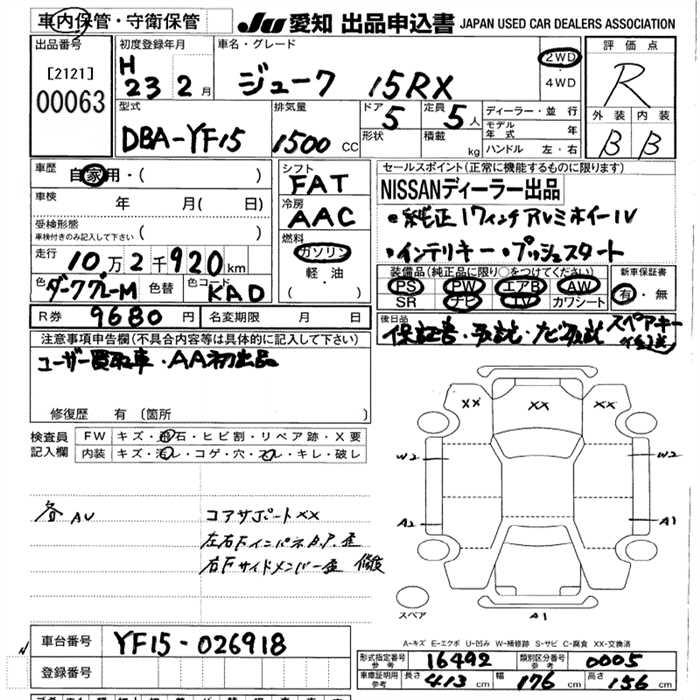 車内保管・守衛保管 JU 愛知 出品申込書 JAPAN USED CAR DEALERS ASSOCIATION
出品番号 初度登録年月 車名・グレード 評価点
[2121] H 23 2月 ジューク 15RX 2WD 4WD R
00063 型式 排気量 ドア 定員 ディーラー・並行 外装 内装
DBA-YF15 1500 CC 5 5人 モデル年式 年 B B
形状 積載 kg ハンドル 左・右
車歴 自家用・( ) シフト FAT セールスポイント(正常に機能するものに限ります)
車検 年 月( 日) 冷房 AAC NISSANディーラー出品
受検形態 ・純正17インチアルミホイール
車検付きのみ記入して下さい ( ) 燃料 ガソリン ・インテリキー・プッシュスタート
走行 10万2千920km 軽・油 装備品(純正品に限り○をつけてください) 新車保証書
色 ダークグレーM 色替 色コード KAD ( ) PS PW エアB AW 有・無
SR ナビ TV カワシート
R券 9680円 名変期限 月 日 後日品 保証書・取説・ナビ取説 スペアキー
注意事項申告欄(不具合内容等は具体的に記入して下さい)
ユーザー買取車・AA初出品
修復歴 有 (箇所 )
検査員 FW キズ・飛石・ヒビ割・リペア跡・X要
記入欄 内装 キズ・汚レ・コゲ・穴・スレ・キレ・破レ
XX XX XX
W2 W2
各 AU コアサポートXX A2 A1
左右Fインパネ B.P. 歪
右Fサイドメンバー歪 修復
スペア A1
A-キズ E-エクボ U-凹み W-補修跡 S-サビ C-腐食 XX-交換済
車台番号 YF15-026918 形式指定番号 参考 16492 類別区分番号 参考 0005
登録番号 車庫証明用 参考 長さ 413 cm 幅 176 cm 高さ 156 cm